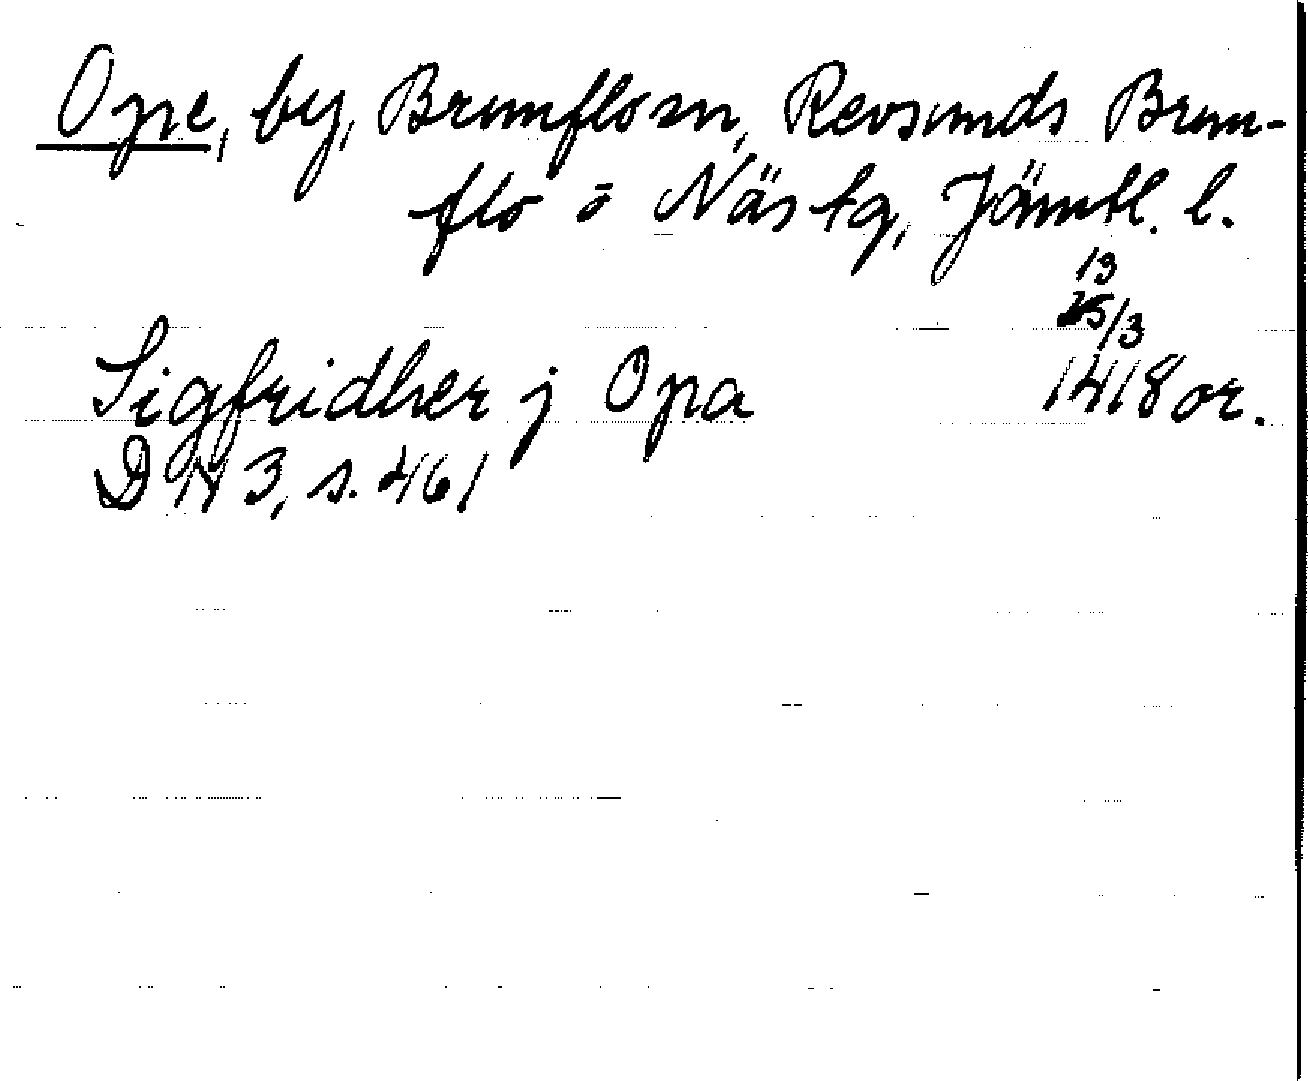 Ope, by, Brunflo sn, Revsunds Brun-
flo o Näs tg, Jämtl. l.
13
25/3
Sigfridher j Opa 1418 or.
DN 3, s. 461